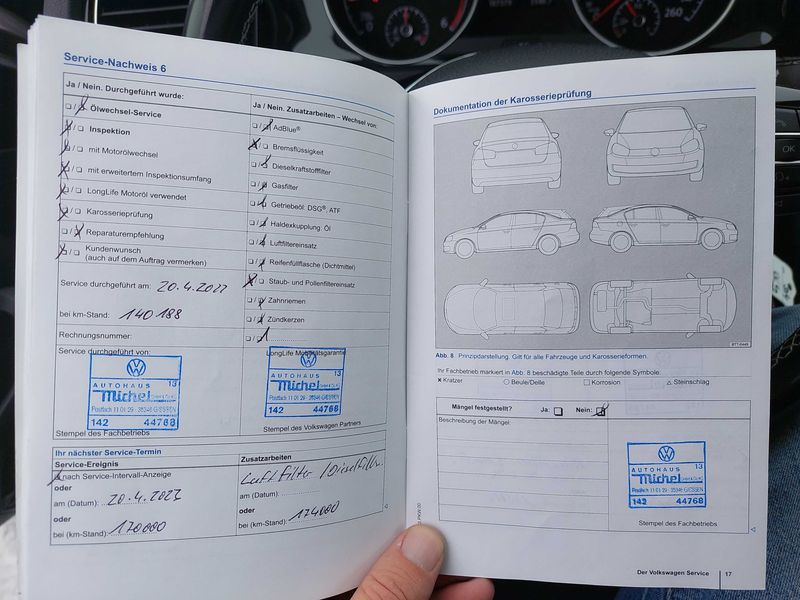 Service-Nachweis 6
Ja / Nein. Durchgeführt wurde:
Ölwechsel-Service
Inspektion
mit Motorölwechsel
mit erweitertem Inspektionsumfang
LongLife Motoröl verwendet
Karosserieprüfung
Reparaturempfehlung
Kundenwunsch
(auch auf dem Auftrag vermerken)
Service durchgeführt am: 20.4.2022
bei km-Stand: 140188
Rechnungsnummer:
Service durchgeführt von:
AUTOHAUS 13
Michel GmbH & Co. KG
Postfach 11 01 29 - 35346 GIESSEN
142 44768
Stempel des Fachbetriebs
Ja / Nein. Zusatzarbeiten – Wechsel von:
AdBlue®
Bremsflüssigkeit
Dieselkraftstofffilter
Gasfilter
Getriebeöl: DSG®, ATF
Haldexkupplung: Öl
Luftfiltereinsatz
Reifenfüllflasche (Dichtmittel)
Staub- und Pollenfiltereinsatz
Zahnriemen
Zündkerzen
LongLife Mobilitätsgarantie
AUTOHAUS 13
Michel GmbH & Co. KG
Postfach 11 01 29 - 35346 GIESSEN
142 44768
Stempel des Volkswagen Partners
Ihr nächster Service-Termin
Service-Ereignis
nach Service-Intervall-Anzeige
oder
am (Datum): 20.4.2023
oder
bei (km-Stand): 170000
Zusatzarbeiten
Luftfilter / Dieselfilter
am (Datum):
oder
bei (km-Stand): 174000
Dokumentation der Karosserieprüfung
Abb. 8 Prinzipdarstellung. Gilt für alle Fahrzeuge und Karosserieformen.
Ihr Fachbetrieb markiert in Abb. 8 beschädigte Teile durch folgende Symbole:
Kratzer Beule/Delle Korrosion Steinschlag
Mängel festgestellt? Ja: Nein:
Beschreibung der Mängel:
AUTOHAUS 13
Michel GmbH & Co. KG
Postfach 11 01 29 - 35346 GIESSEN
142 44768
Stempel des Fachbetriebs
Der Volkswagen Service 17
6
260
OK